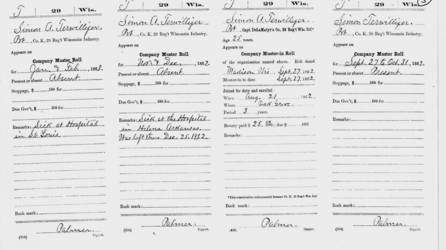 T 29 Wis.
Simon A. Terwilliger
Pvt., Co. K, 29 Reg't Wisconsin Infantry.
Appears on
Company Muster Roll
for Jan. & Feb., 1863.
Present or absent Absent
Stoppage, $ 100 for
Due Gov't, $ 100 for
Remarks: Sick at Hospital
in St. Louis
Book mark:
Palmer
Copyist.
29 Wis.
Simon A. Terwilliger
Pvt., Co. K, 29 Reg't Wisconsin Infantry.
Appears on
Company Muster Roll
for Nov. & Dec., 1862.
Present or absent Absent
Stoppage, $ 100 for
Due Gov't, $ 100 for
Remarks: Sick at the Hospital
in Helena Arkansas.
Was left there Dec. 25, 1862
Book mark:
Palmer
Copyist.
T 29 Wis.
Simon A. Terwilliger
Age 25 years.
Appears on
Company Muster-in Roll
of the organization named above. Roll dated
Madison Wis. Sept. 27, 1862.
Muster-in to date Sept. 27, 1862.
Joined for duty and enrolled:
When Aug. 21, 1862.
Where
Period 3 years.
Bounty paid $ 25 100; due $ 100
Remarks:
Book mark:
Palmer
Copyist.
T 29 Wis.
Simon A. Terwilliger
Pvt., Co. K, 29 Reg't Wisconsin Infantry.
Appears on
Company Muster Roll
for Sept. 27 to Oct. 31, 1862.
Present or absent Present
Stoppage, $ 100 for
Due Gov't, $ 100 for
Remarks:
Book mark:
Palmer
Copyist.